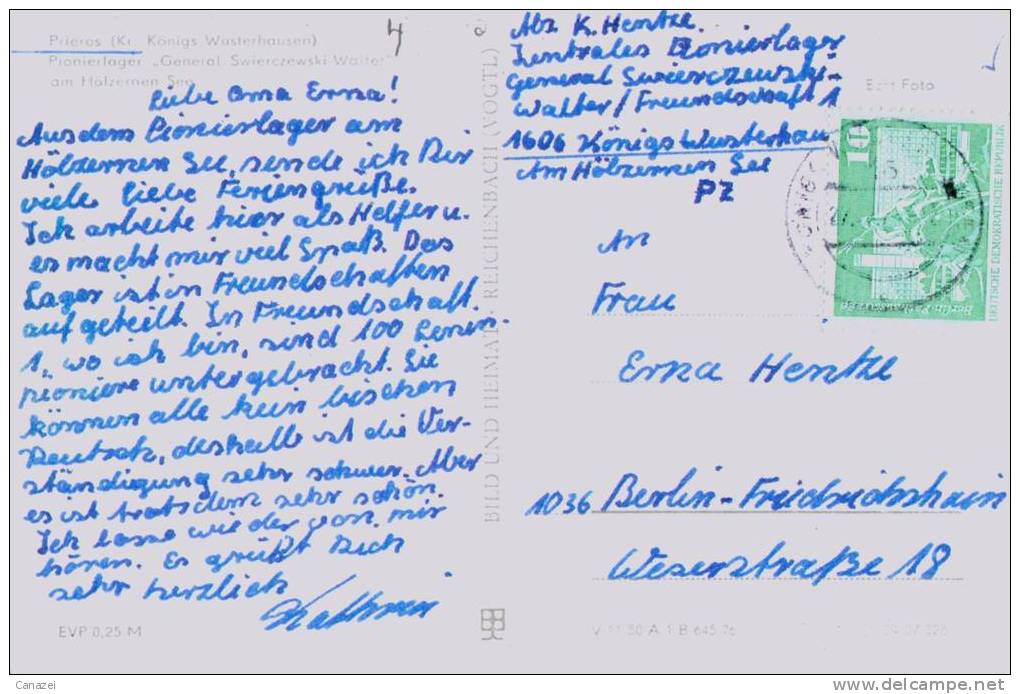 Prieros (Kr. Königs Wusterhausen)
Pionierlager „General Swierczewski-Walter"
am Hölzernen See
4
Liebe Oma Erna!
Aus dem Pionierlager am
Hölzernen See, sende ich Dir
viele liebe Feriengrüße.
Ich arbeite hier als Helfer u.
es macht mir viel Spaß. Das
Lager ist in Freundschaften
aufgeteilt. In Freundschaft
1, wo ich bin, sind 100 Lenin-
pioniere untergebracht. Sie
können alle kein bischen
Deutsch, deshalb ist die Ver-
ständigung sehr schwer. Aber
es ist trotzdem sehr schön.
Ich lasse wieder von mir
hören. Es grüßt Dich
sehr herzlich
Kathrin
EVP 0,25 M
BILD UND HEIMAT REICHENBACH (VOGTL)
Abs. K. Hentze
Zentrales Pionierlager
General Swierczewski-
Walter/Freundschaft 1
1606 Königs Wusterhau
Am Hölzernen See
PZ
Echt Foto
10
DEUTSCHE DEMOKRATISCHE REPUBLIK
An
Frau
Erna Hentze
1036 Berlin-Friedrichshain
Weserstraße 18
V 11 50 A 1 B 645/76
Canazei
www.delcampe.net